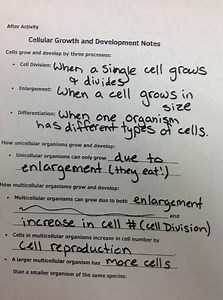 After Activity
Cellular Growth and Development Notes
Cells grow and develop by three processes:
• Cell Division: When a single cell grows
& divides
• Enlargement: When a cell grows in
size
• Differentiation: When one organism
has different types of cells.
How unicellular organisms grow and develop:
• Unicellular organisms can only grow due to
enlargement (they eat!)
How multicellular organisms grow and develop:
• Multicellular organisms can grow due to both enlargement
and
increase in cell # (cell Division)
• Cells in multicellular organisms increase in cell number by
Cell reproduction
• A larger multicellular organism has more cells
than a smaller organism of the same species.